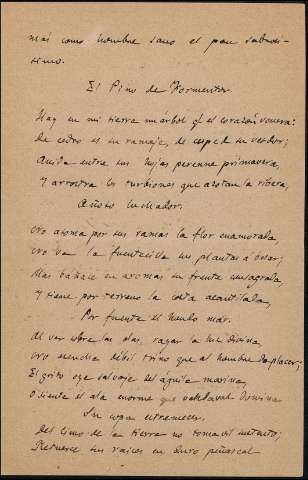 más como hombre sano el pan sabrosí-
simo.
El Pino de Formentor
Hay en mi tierra un árbol q el corazón venera:
De cedro es su ramaje, de césped su verdor;
Anida entre sus hojas perenne primavera,
Y arrostra los turbiones que azotan la ribera,
Añoso luchador.
No asoma por sus ramas la flor enamorada
No va la fuentecilla sus plantas a besar;
Mas báñase en aromas su frente consagrada,
Y tiene por terreno la costa acantilada,
Por fuente el hondo mar.
Al ver sobre las olas, rayar la luz divina,
No escucha débil trino que al hombre da placer;
El grito oye salvaje del águila marina,
O siente el ala enorme que el vendaval domina
Su copa estremecer.
Del limo de la tierra no toma vil sustento;
Retuerce sus raíces en duro peñascal.